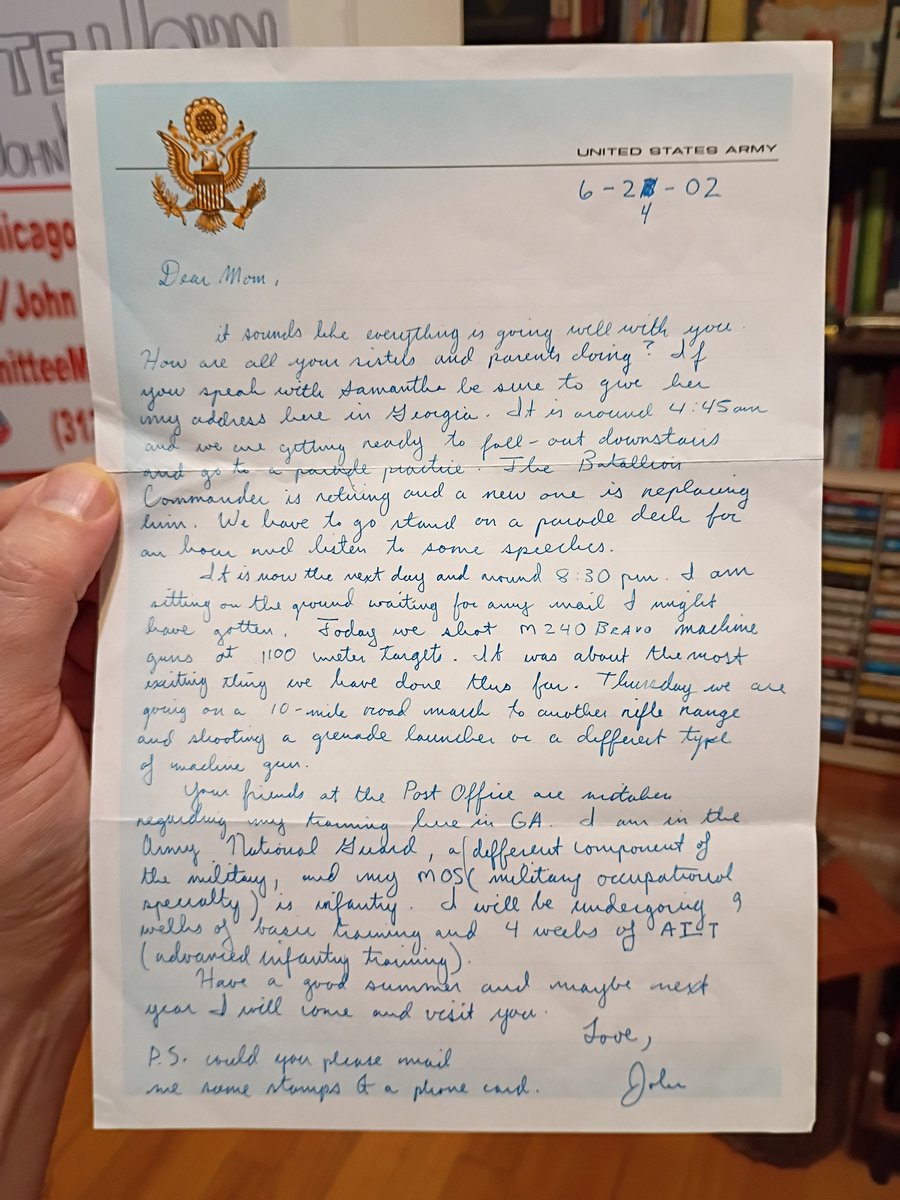 TE JOHN
JOHN
hicago
/John
mitteeM
(312
UNITED STATES ARMY
6-2 -02
4
Dear Mom,
it sounds like everything is going well with you.
How are all your sisters and parents doing? If
you speak with Samantha be sure to give her
my address here in Georgia. It is around 4:45am
and we are getting ready to fall-out downstairs
and go to a parade practice. The Batallion
Commander is retiring and a new one is replacing
him. We have to go stand on a parade deck for
an hour and listen to some speeches.
It is now the next day and around 8:30 pm. I am
sitting on the ground waiting for any mail I might
have gotten. Today we shot M240 Bravo machine
guns at 1100 meter targets. It was about the most
exciting thing we have done thus far. Thursday we are
going on a 10-mile road march to another rifle range
and shooting a grenade launcher or a different type
of machine gun.
Your friends at the Post Office are mistaken
regarding my training here in GA. I am in the
Army National Guard, a different component of
the military, and my MOS (military occupational
specialty) is infantry. I will be undergoing 9
weeks of basic training and 4 weeks of AIT
(advanced infantry training).
Have a good summer and maybe next
year I will come and visit you.
Love,
John
P.S. could you please mail
me some stamps & a phone card.